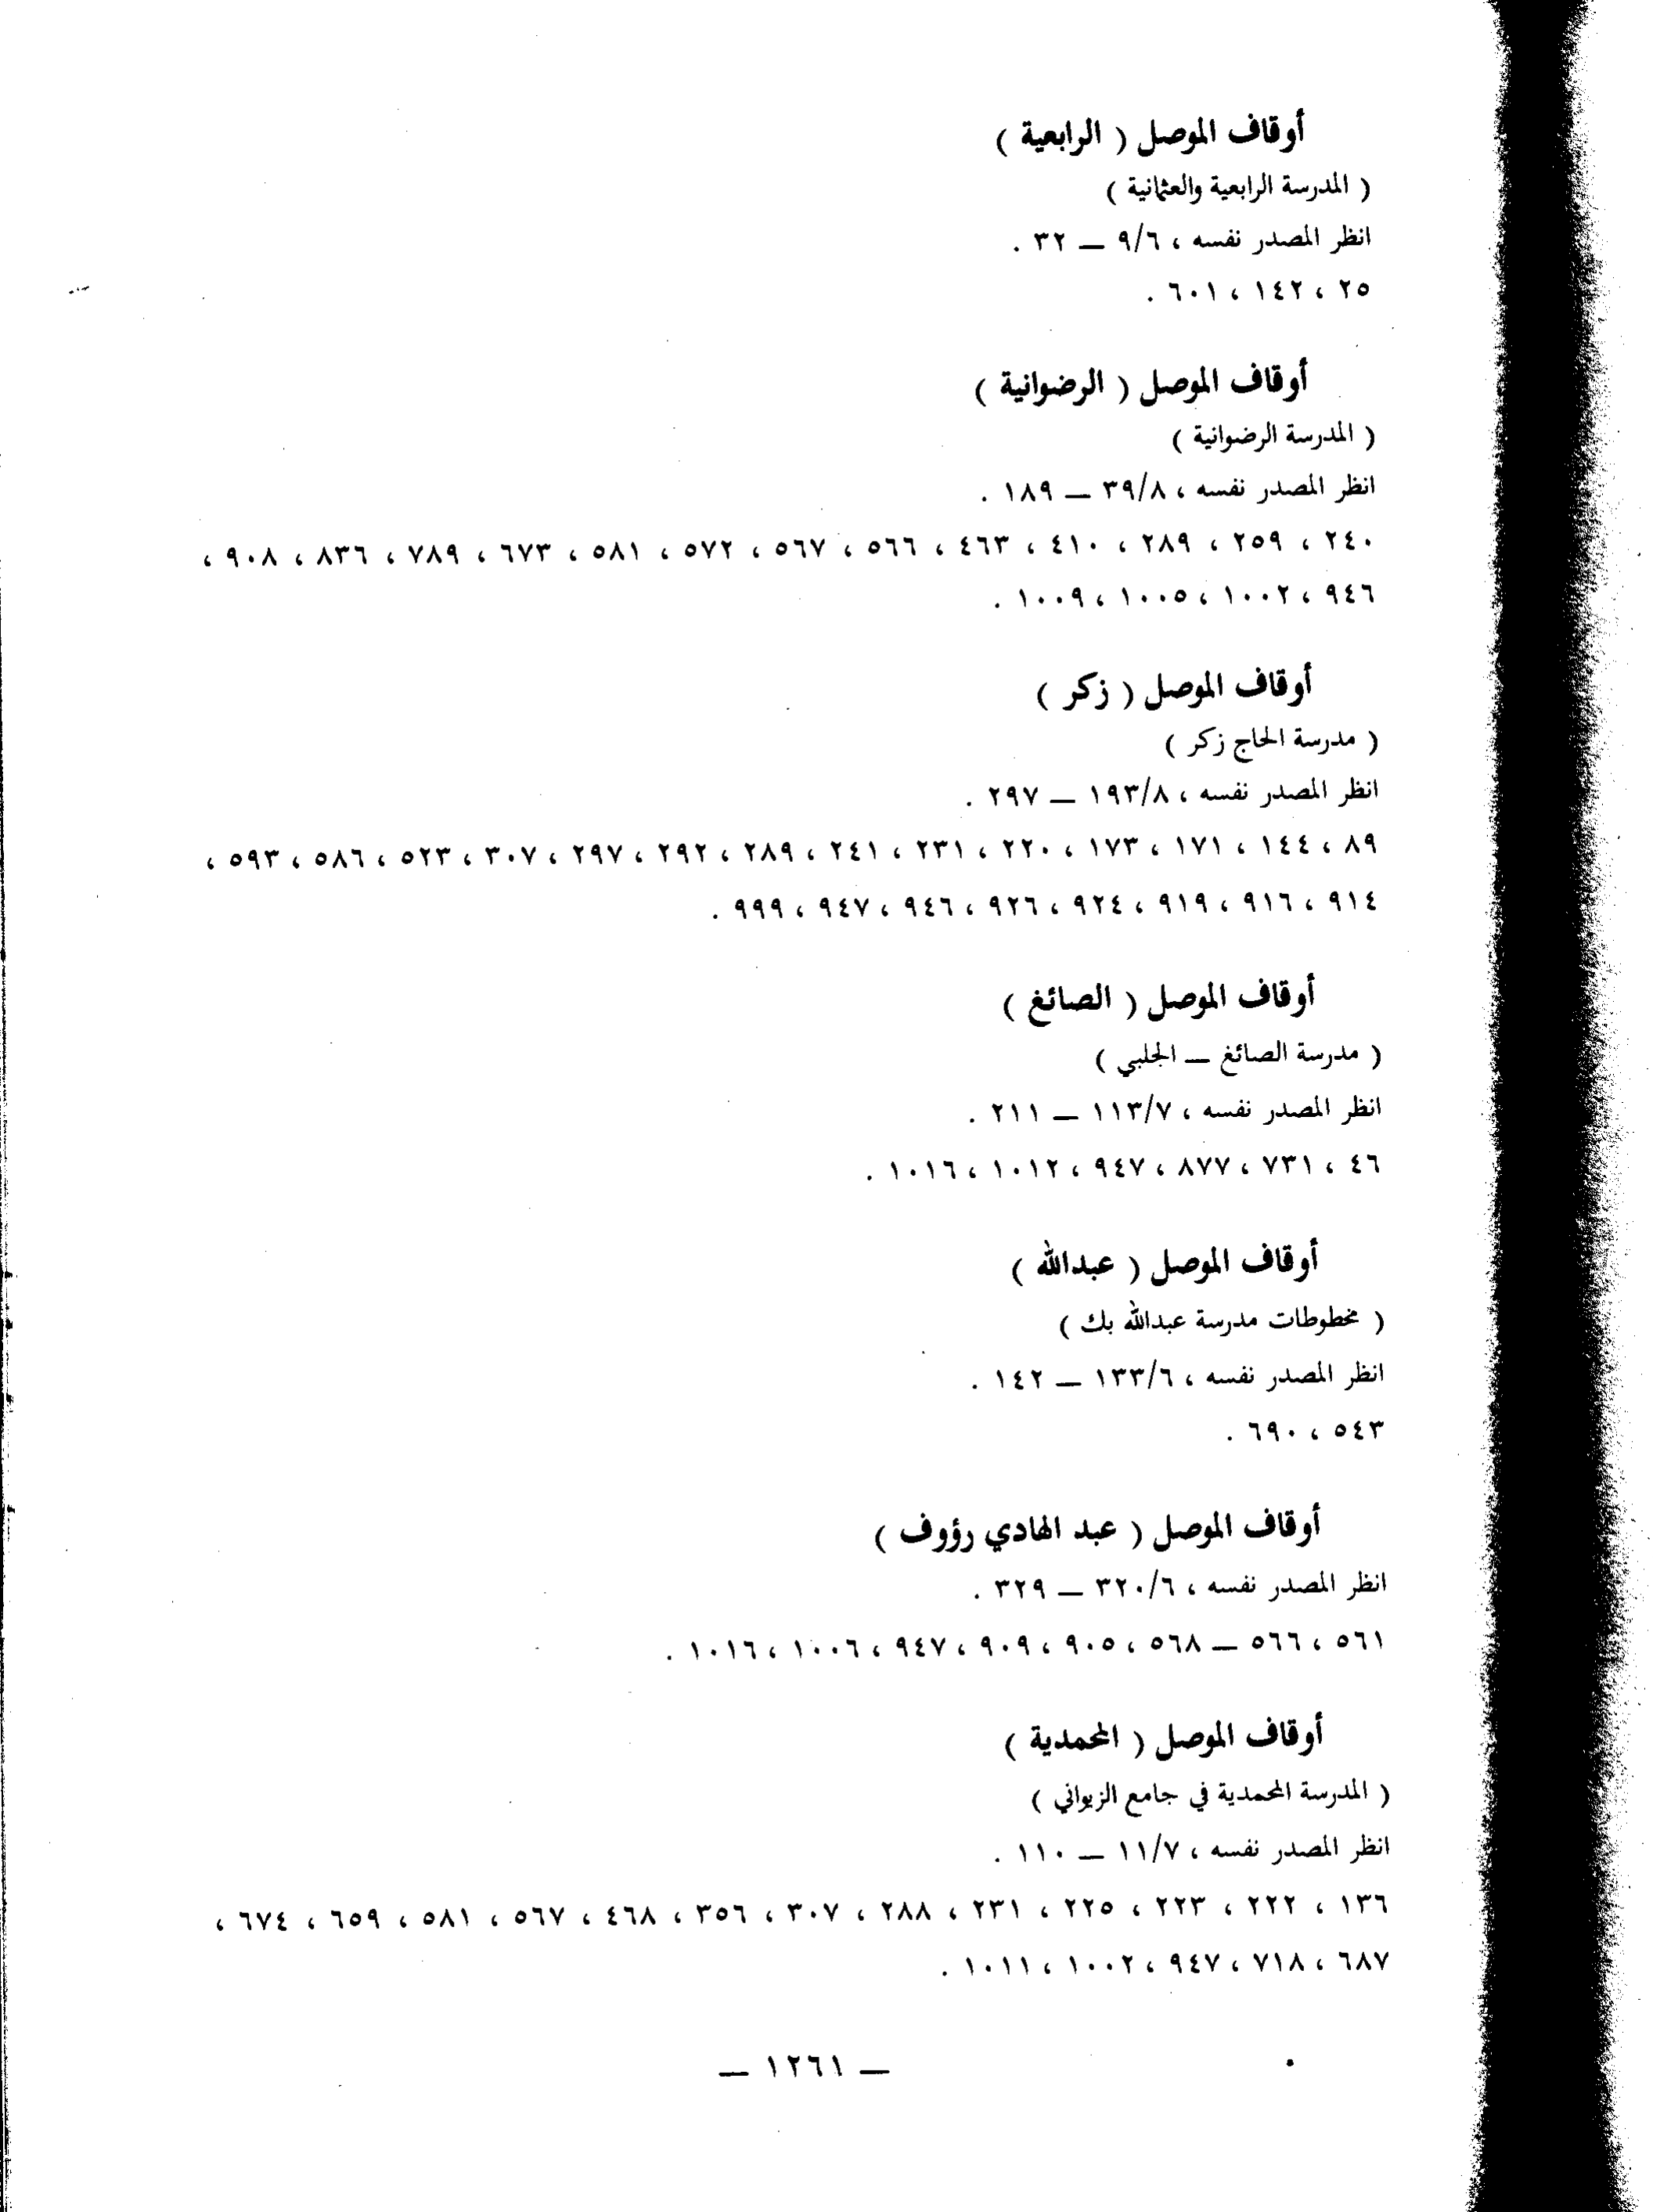 أوقاف الموصل ( الرابعية )
( المدرسة الرابعية والعثمانية )
انظر المصدر نفسه ، ٩/٦ — ٣٢ .
٢٥ ، ١٤٢ ، ٦٠١ .
أوقاف الموصل ( الرضوانية )
( المدرسة الرضوانية )
انظر المصدر نفسه ، ٣٩/٨ — ١٨٩ .
٢٤٠ ، ٢٥٩ ، ٢٨٩ ، ٤١٠ ، ٤٦٣ ، ٥٦٦ ، ٥٦٧ ، ٥٧٢ ، ٥٨١ ، ٦٧٣ ، ٧٨٩ ، ٨٣٦ ، ٩٠٨ ،
٩٤٦ ، ١٠٠٢ ، ١٠٠٥ ، ١٠٠٩ .
أوقاف الموصل ( زكر )
( مدرسة الحاج زكر )
انظر المصدر نفسه ، ١٩٣/٨ — ٢٩٧ .
٨٩ ، ١٤٤ ، ١٧١ ، ١٧٣ ، ٢٢٠ ، ٢٣١ ، ٢٤١ ، ٢٨٩ ، ٢٩٢ ، ٢٩٧ ، ٣٠٧ ، ٥٢٣ ، ٥٨٦ ، ٥٩٣ ،
٩١٤ ، ٩١٦ ، ٩١٩ ، ٩٢٤ ، ٩٢٦ ، ٩٤٦ ، ٩٤٧ ، ٩٩٩ .
أوقاف الموصل ( الصائغ )
( مدرسة الصائغ — الجلبي )
انظر المصدر نفسه ، ١١٣/٧ — ٢١١ .
٤٦ ، ٧٣١ ، ٨٧٧ ، ٩٤٧ ، ١٠١٢ ، ١٠١٦ .
أوقاف الموصل ( عبدالله )
( مخطوطات مدرسة عبدالله بك )
انظر المصدر نفسه ، ١٣٣/٦ — ١٤٢ .
٥٤٣ ، ٦٩٠ .
أوقاف الموصل ( عبد الهادي رؤوف )
انظر المصدر نفسه ، ٣٢٠/٦ — ٣٢٩ .
٥٦١ ، ٥٦٦ — ٥٦٨ ، ٩٠٥ ، ٩٠٩ ، ٩٤٧ ، ١٠٠٦ ، ١٠١٦ .
أوقاف الموصل ( المحمدية )
( المدرسة المحمدية في جامع الزيواني )
انظر المصدر نفسه ، ١١/٧ — ١١٠ .
١٣٦ ، ٢٢٢ ، ٢٢٣ ، ٢٢٥ ، ٢٣١ ، ٢٨٨ ، ٣٠٧ ، ٣٥٦ ، ٤٦٨ ، ٥٦٧ ، ٥٨١ ، ٦٥٩ ، ٦٧٤ ،
٦٨٧ ، ٧١٨ ، ٩٤٧ ، ١٠٠٢ ، ١٠١١ .
— ١٢٦١ —